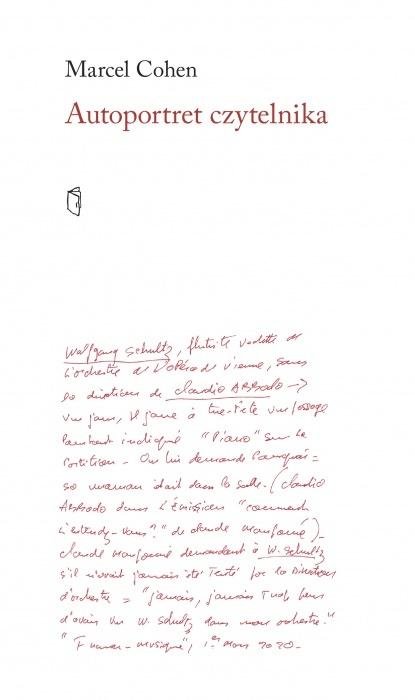 Marcel Cohen
Autoportret czytelnika
Wolfgang Schultz, flûtiste vedette de
l'orchestre de l'Opéra de Vienne, sous
la direction de Claudio ABBADO →
un jour, il joue à tue-tête un passage
pourtant indiqué "Piano" sur la
partition – On lui demande pourquoi =
sa maman était dans la salle. (Claudio
ABBADO dans l'émission "comment
l'entendez-vous?" de Claude Maupomé) –
Claude Maupomé demandant à W. Schultz
s'il n'avait jamais été tenté par la direction
d'orchestre = "jamais, jamais
d'avoir un W. Schultz dans mon orchestre."
"France-musique", 1er Mars 2020 –